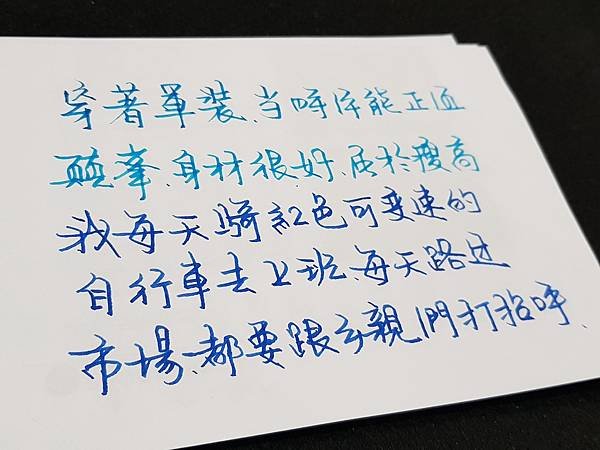 穿著軍裝、当時体能正值
巔峯、身材很好、属於瘦高
我每天騎紅色可变速的
自行車去上班、每天路过
市場、都要跟乡親們打招呼、